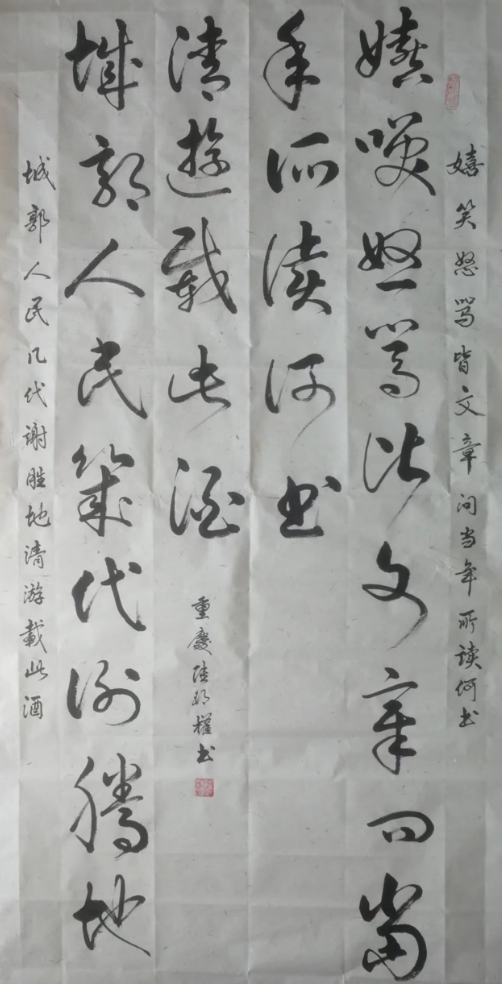 嬉笑怒骂皆文章问当年所读何书
嬉咲怒罵皆文章问當
年所读何书
城郭人民几代谢胜地清游载此酒
城郭人民幾代谢勝地
清遊载此酒
重慶陆 权书